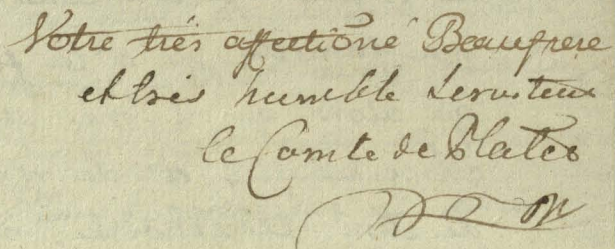 Votre trés affectioné Beaufrere
et trés humble Serviteur
le Comte de Plater